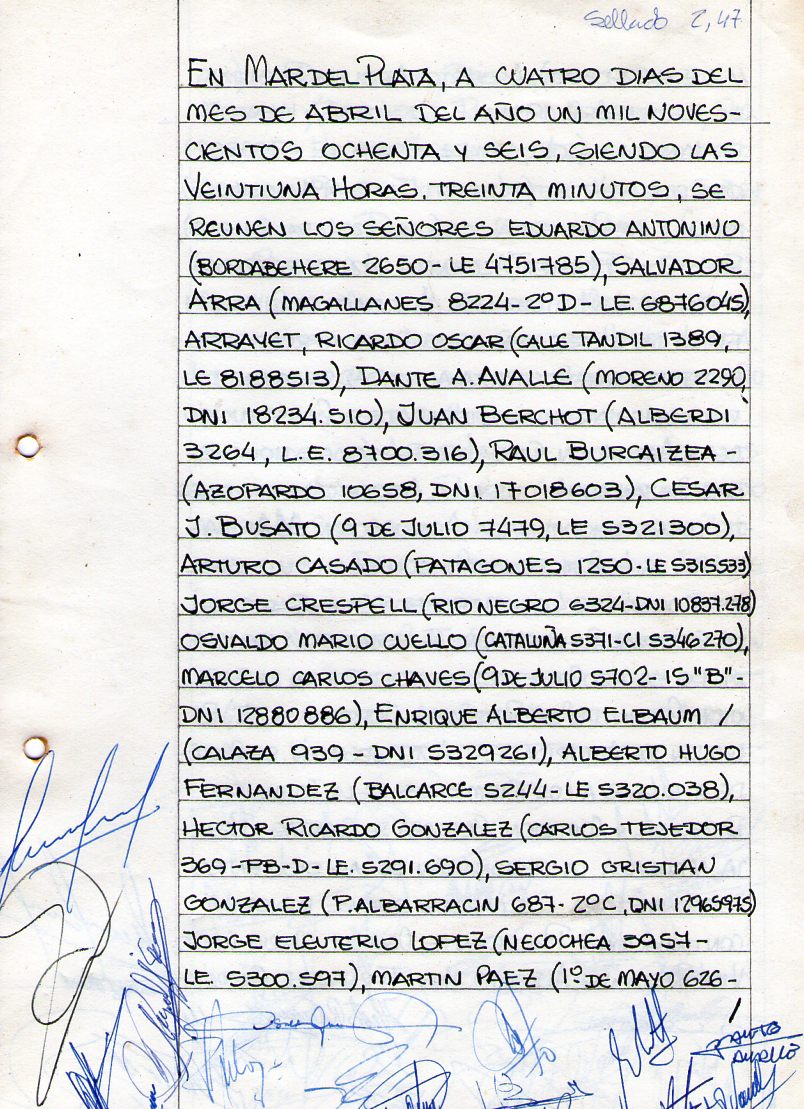 Sellado 2,47
EN MAR DEL PLATA, A CUATRO DIAS DEL
MES DE ABRIL DEL AÑO UN MIL NOVES-
CIENTOS OCHENTA Y SEIS, SIENDO LAS
VEINTIUNA HORAS, TREINTA MINUTOS, SE
REUNEN LOS SEÑORES EDUARDO ANTONINO
(BORDABEHERE 2650- LE 4751785), SALVADOR
ARRA (MAGALLANES 8224-2º D- LE. 6876045),
ARRAYET, RICARDO OSCAR (CALLE TANDIL 1389,
LE 8188513), DANTE A. AVALLE (MORENO 2290,
DNI 18234.510), JUAN BERCHOT (ALBERDI
3264, L.E. 8700.316), RAUL BURGAIZEA -
(AZOPARDO 10658, DNI. 17018603), CESAR
J. BUSATO (9 DE JULIO 7479, LE 5321300),
ARTURO CASADO (PATAGONES 1250-LE 5315533)
JORGE CRESPELL (RIO NEGRO 6324-DNI 10837.278)
OSVALDO MARIO CUELLO (CATALUÑA 5371-CI 5346270),
MARCELO CARLOS CHAVES (9 DE JULIO 5702- 15 "B"-
DNI 12880886), ENRIQUE ALBERTO ELBAUM /
(CALAZA 939 - DNI 5329261), ALBERTO HUGO
FERNANDEZ (BALCARCE 5244-LE 5320.038),
HECTOR RICARDO GONZALEZ (CARLOS TEJEDOR
369-PB-D-LE. 5291.690), SERGIO CRISTIAN
GONZALEZ (P. ALBARRACIN 687- 2º C, DNI 12965975)
JORGE ELEUTERIO LOPEZ (NECOCHEA 3957-
LE. 5300.597), MARTIN PAEZ (1º DE MAYO 626-